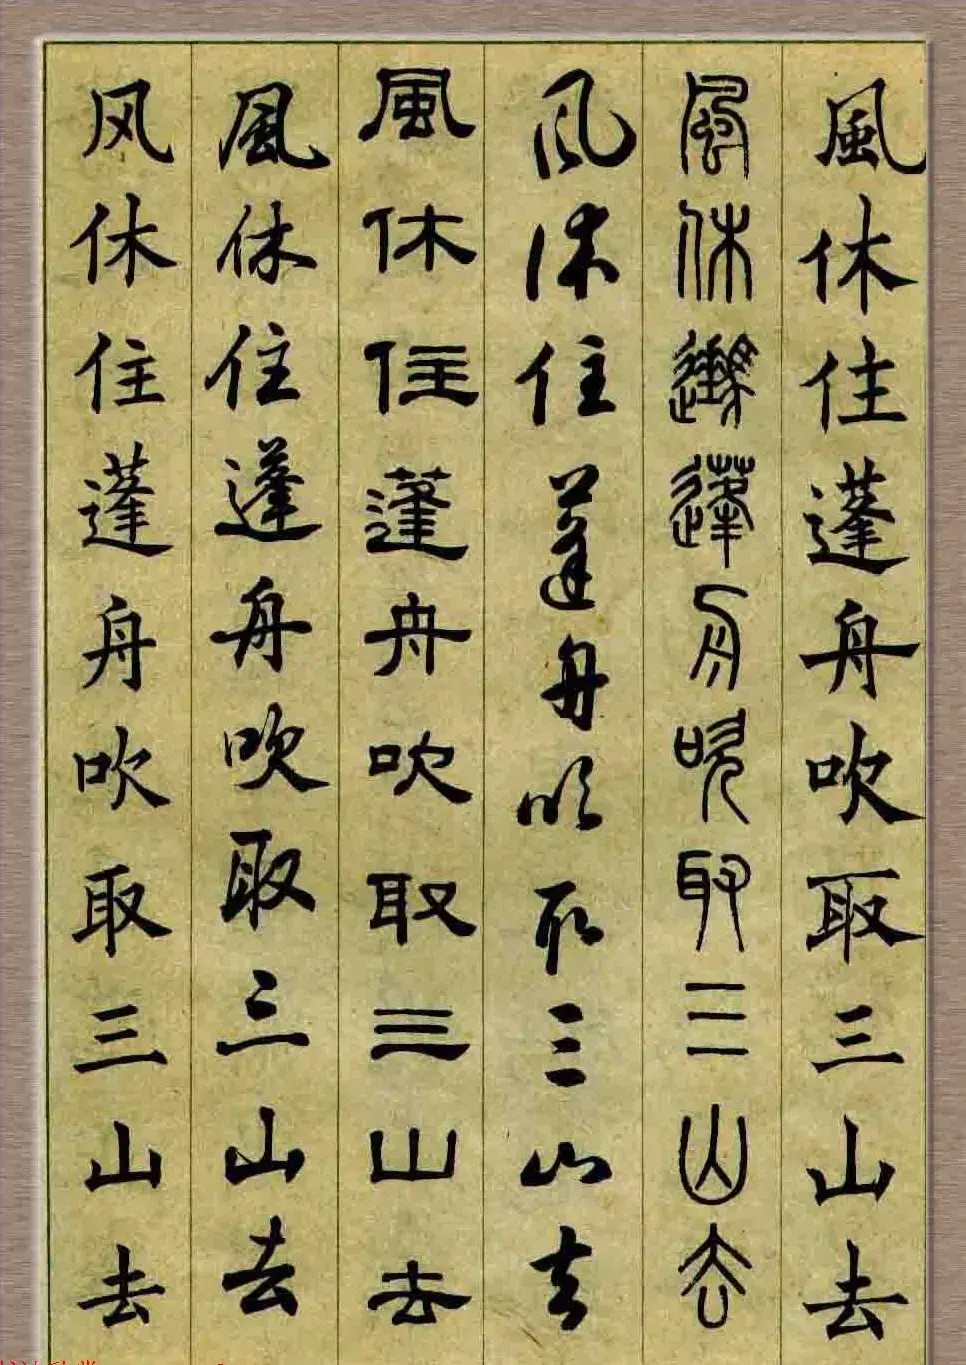 風休住蓬舟吹取三山去
風休蓬舟吹取三山去
風休住蓬舟吹取三山去
風休住蓬舟吹取三山去
風休住蓬舟吹取三山去
风休住蓬舟吹取三山去